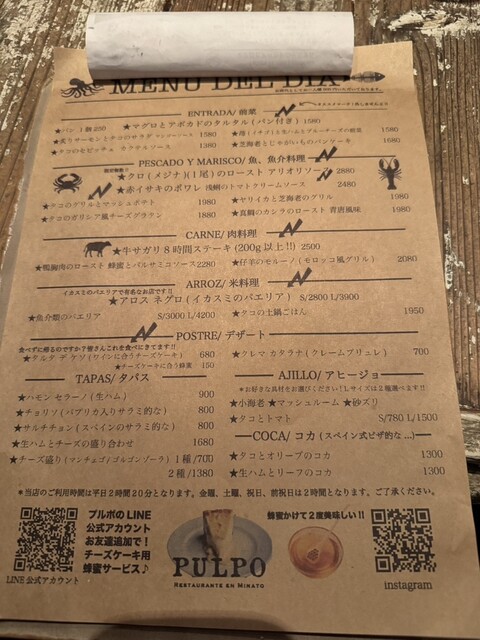 MENU DEL DIA
ENTRADA/ 前菜
★パン 1個 250
★マグロとアボカドのタルタル(パン付き) 1580
★炙りサーモンとタコのサラダ 1580
1680
★タコのセビッチェ カクテルソース 1380
★芝海老とじゃがいものパンケーキ 1680
PESCADO Y MARISCO/ 魚、魚介料理
★クロ(メジナ)(1尾)のロースト アリオリソース 2880
★赤イサキのポワレ 浅蜊のトマトクリームソース 2480
★タコのグリルとマッシュポテト 1980
★ヤリイカと芝海老のグリル 1980
★タコのガリシア風チーズグラタン 1880
★真鯛のカシラのロースト 香草風味 1980
CARNE/ 肉料理
★牛サガリ8時間ステーキ(200g以上!!) 2500
★鴨胸肉のロースト 蜂蜜とバルサミコソース 2280
★仔羊のモルーノ(モロッコ風グリル) 2080
ARROZ/ 米料理
イカスミのパエリアで有名なお店です!!
★アロス ネグロ(イカスミのパエリア) S/2800 L/3900
★魚介類のパエリア S/3000 L/4200
★タコの土鍋ごはん 1950
POSTRE/ デザート
食べずに帰るのですか?皆さんこれを食べにきてます!!
★タルタ デ ケソ(ワインに合うチーズケーキ) 680
★クレマ カタラナ(クレームブリュレ) 700
★チーズケーキに合う蜂蜜 150
TAPAS/ タパス
★ハモン セラーノ(生ハム) 900
★チョリソ(パプリカ入りサラミ的な) 800
★サルチチョン(スペインのサラミ的な) 800
★生ハムとチーズの盛り合わせ 1680
★チーズ盛り(マンチェゴ/ゴルゴンゾーラ) 1種/700
2種/1380
AJILLO/ アヒージョ
*お好きな具材をお選びください!Lサイズは2種選べます!!
★小海老 ★マッシュルーム ★砂ズリ
★タコとトマト S/780 L/1500
COCA/ コカ(スペイン式ピザ的な...)
★タコとオリーブのコカ 1300
★生ハムとリーフのコカ 1300
*当店のご利用時間は平日2時間20分となります。金曜、土曜、祝日、前祝日は2時間となります。ご了承ください。
プルポのLINE
公式アカウント
お友達追加で!
チーズケーキ用
蜂蜜サービス♪
LINE公式アカウント
PULPO
RESTAURANTE EN MINATO
蜂蜜かけて2度美味しい!!
instagram